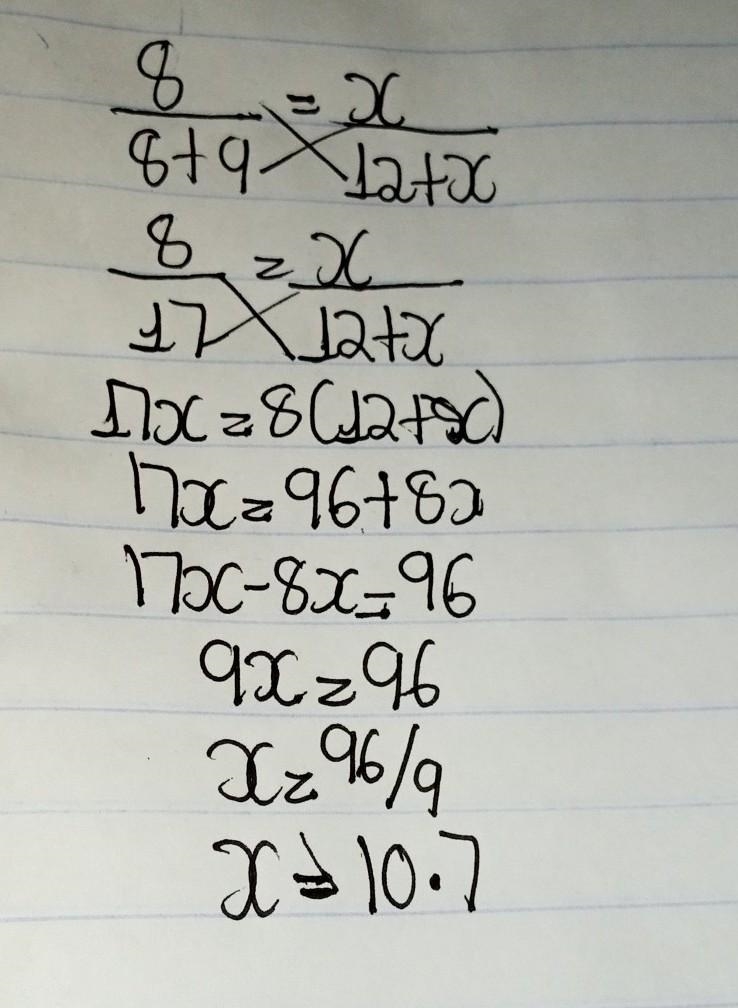 8/(8+9) = x/(12+x)
8/17 = x/(12+x)
17x = 8(12+x)
17x = 96+8x
17x-8x = 96
9x = 96
x = 96/9
x = 10.7